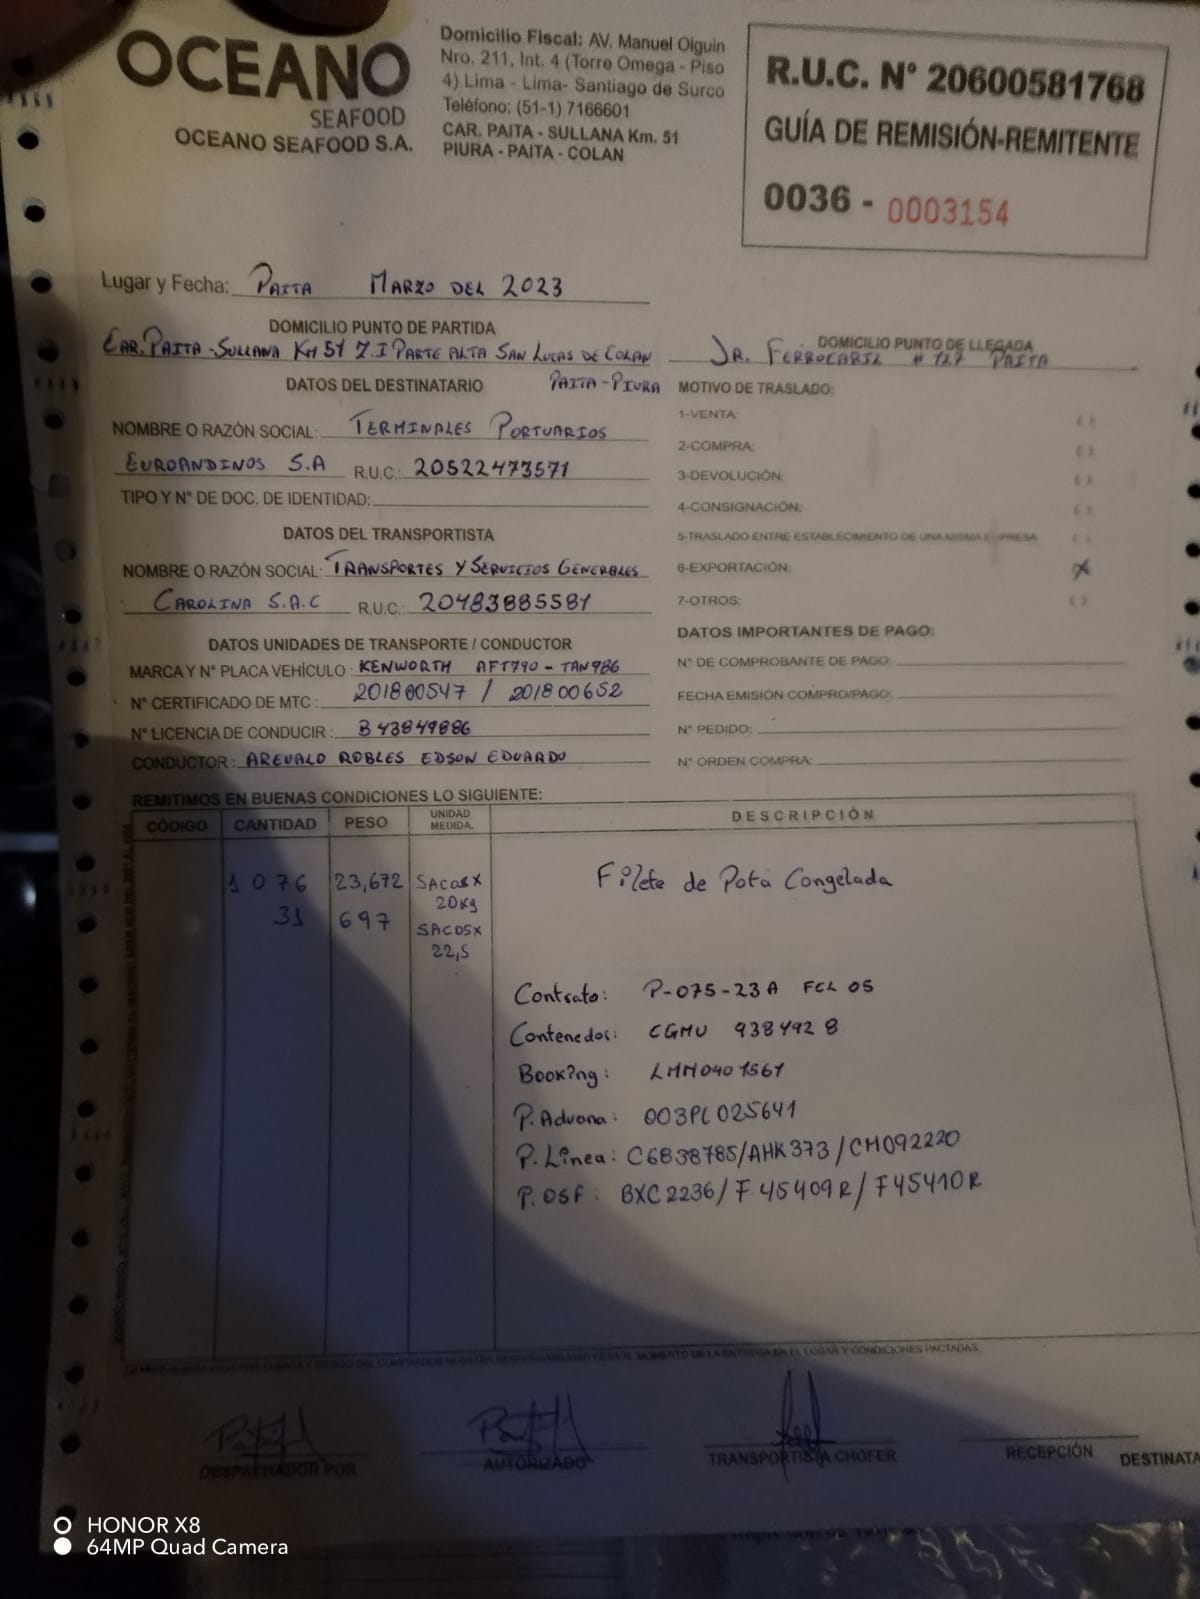 OCEANO
SEAFOOD
OCEANO SEAFOOD S.A.
Domicilio Fiscal: AV. Manuel Olguin
Nro. 211, Int. 4 (Torre Omega - Piso
4) Lima - Lima- Santiago de Surco
Teléfono: (51-1) 7166601
CAR. PAITA - SULLANA Km. 51
PIURA - PAITA - COLAN
R.U.C. N° 20600581768
GUÍA DE REMISIÓN-REMITENTE
0036 - 0003154
Lugar y Fecha: PAITA MARZO DEL 2023
DOMICILIO PUNTO DE PARTIDA
CAR. PAITA - SULLANA KM 51 Z.I PARTE ALTA SAN LUCAS DE COLAN
PAITA - PIURA
DOMICILIO PUNTO DE LLEGADA
JR. FERROCARIL # 127 PAITA
DATOS DEL DESTINATARIO
NOMBRE O RAZÓN SOCIAL: TERMINALES PORTUARIOS
EUROANDINOS S.A R.U.C.: 20522473571
TIPO Y N° DE DOC. DE IDENTIDAD:
DATOS DEL TRANSPORTISTA
NOMBRE O RAZÓN SOCIAL: TRANSPORTES Y SERVICIOS GENERALES
CAROLINA S.A.C R.U.C.: 20483885581
DATOS UNIDADES DE TRANSPORTE / CONDUCTOR
MARCA Y N° PLACA VEHÍCULO: KENWORTH AFT790 - TAN986
N° CERTIFICADO DE MTC: 201800547 / 201800652
N° LICENCIA DE CONDUCIR: B43849886
CONDUCTOR: AREVALO ROBLES EDSON EDUARDO
MOTIVO DE TRASLADO:
1-VENTA: ( )
2-COMPRA: ( )
3-DEVOLUCIÓN: ( )
4-CONSIGNACIÓN: ( )
5-TRASLADO ENTRE ESTABLECIMIENTO DE UNA MISMA EMPRESA ( )
6-EXPORTACIÓN: X
7-OTROS: ( )
DATOS IMPORTANTES DE PAGO:
N° DE COMPROBANTE DE PAGO:
FECHA EMISIÓN COMPRO/PAGO:
N° PEDIDO:
N° ORDEN COMPRA:
REMITIMOS EN BUENAS CONDICIONES LO SIGUIENTE:
CÓDIGO CANTIDAD PESO UNIDAD MEDIDA. DESCRIPCIÓN
1076 23,672 SACOS X Filete de Pota Congelada
20Kg
31 697 SACOS X
22,5
Contrato: P-075-23A FCL 05
Contenedor: CGMU 938492 8
Booking: LMM0401561
P. Aduana: 003PL025641
P. Linea: C6838785/AHK373/CM092220
P. OSF: BXC2236/F45409R/F45410R
DESPACHADOR POR
AUTORIZADO
TRANSPORTISTA CHOFER
RECEPCIÓN
DESTINATA
HONOR X8
64MP Quad Camera